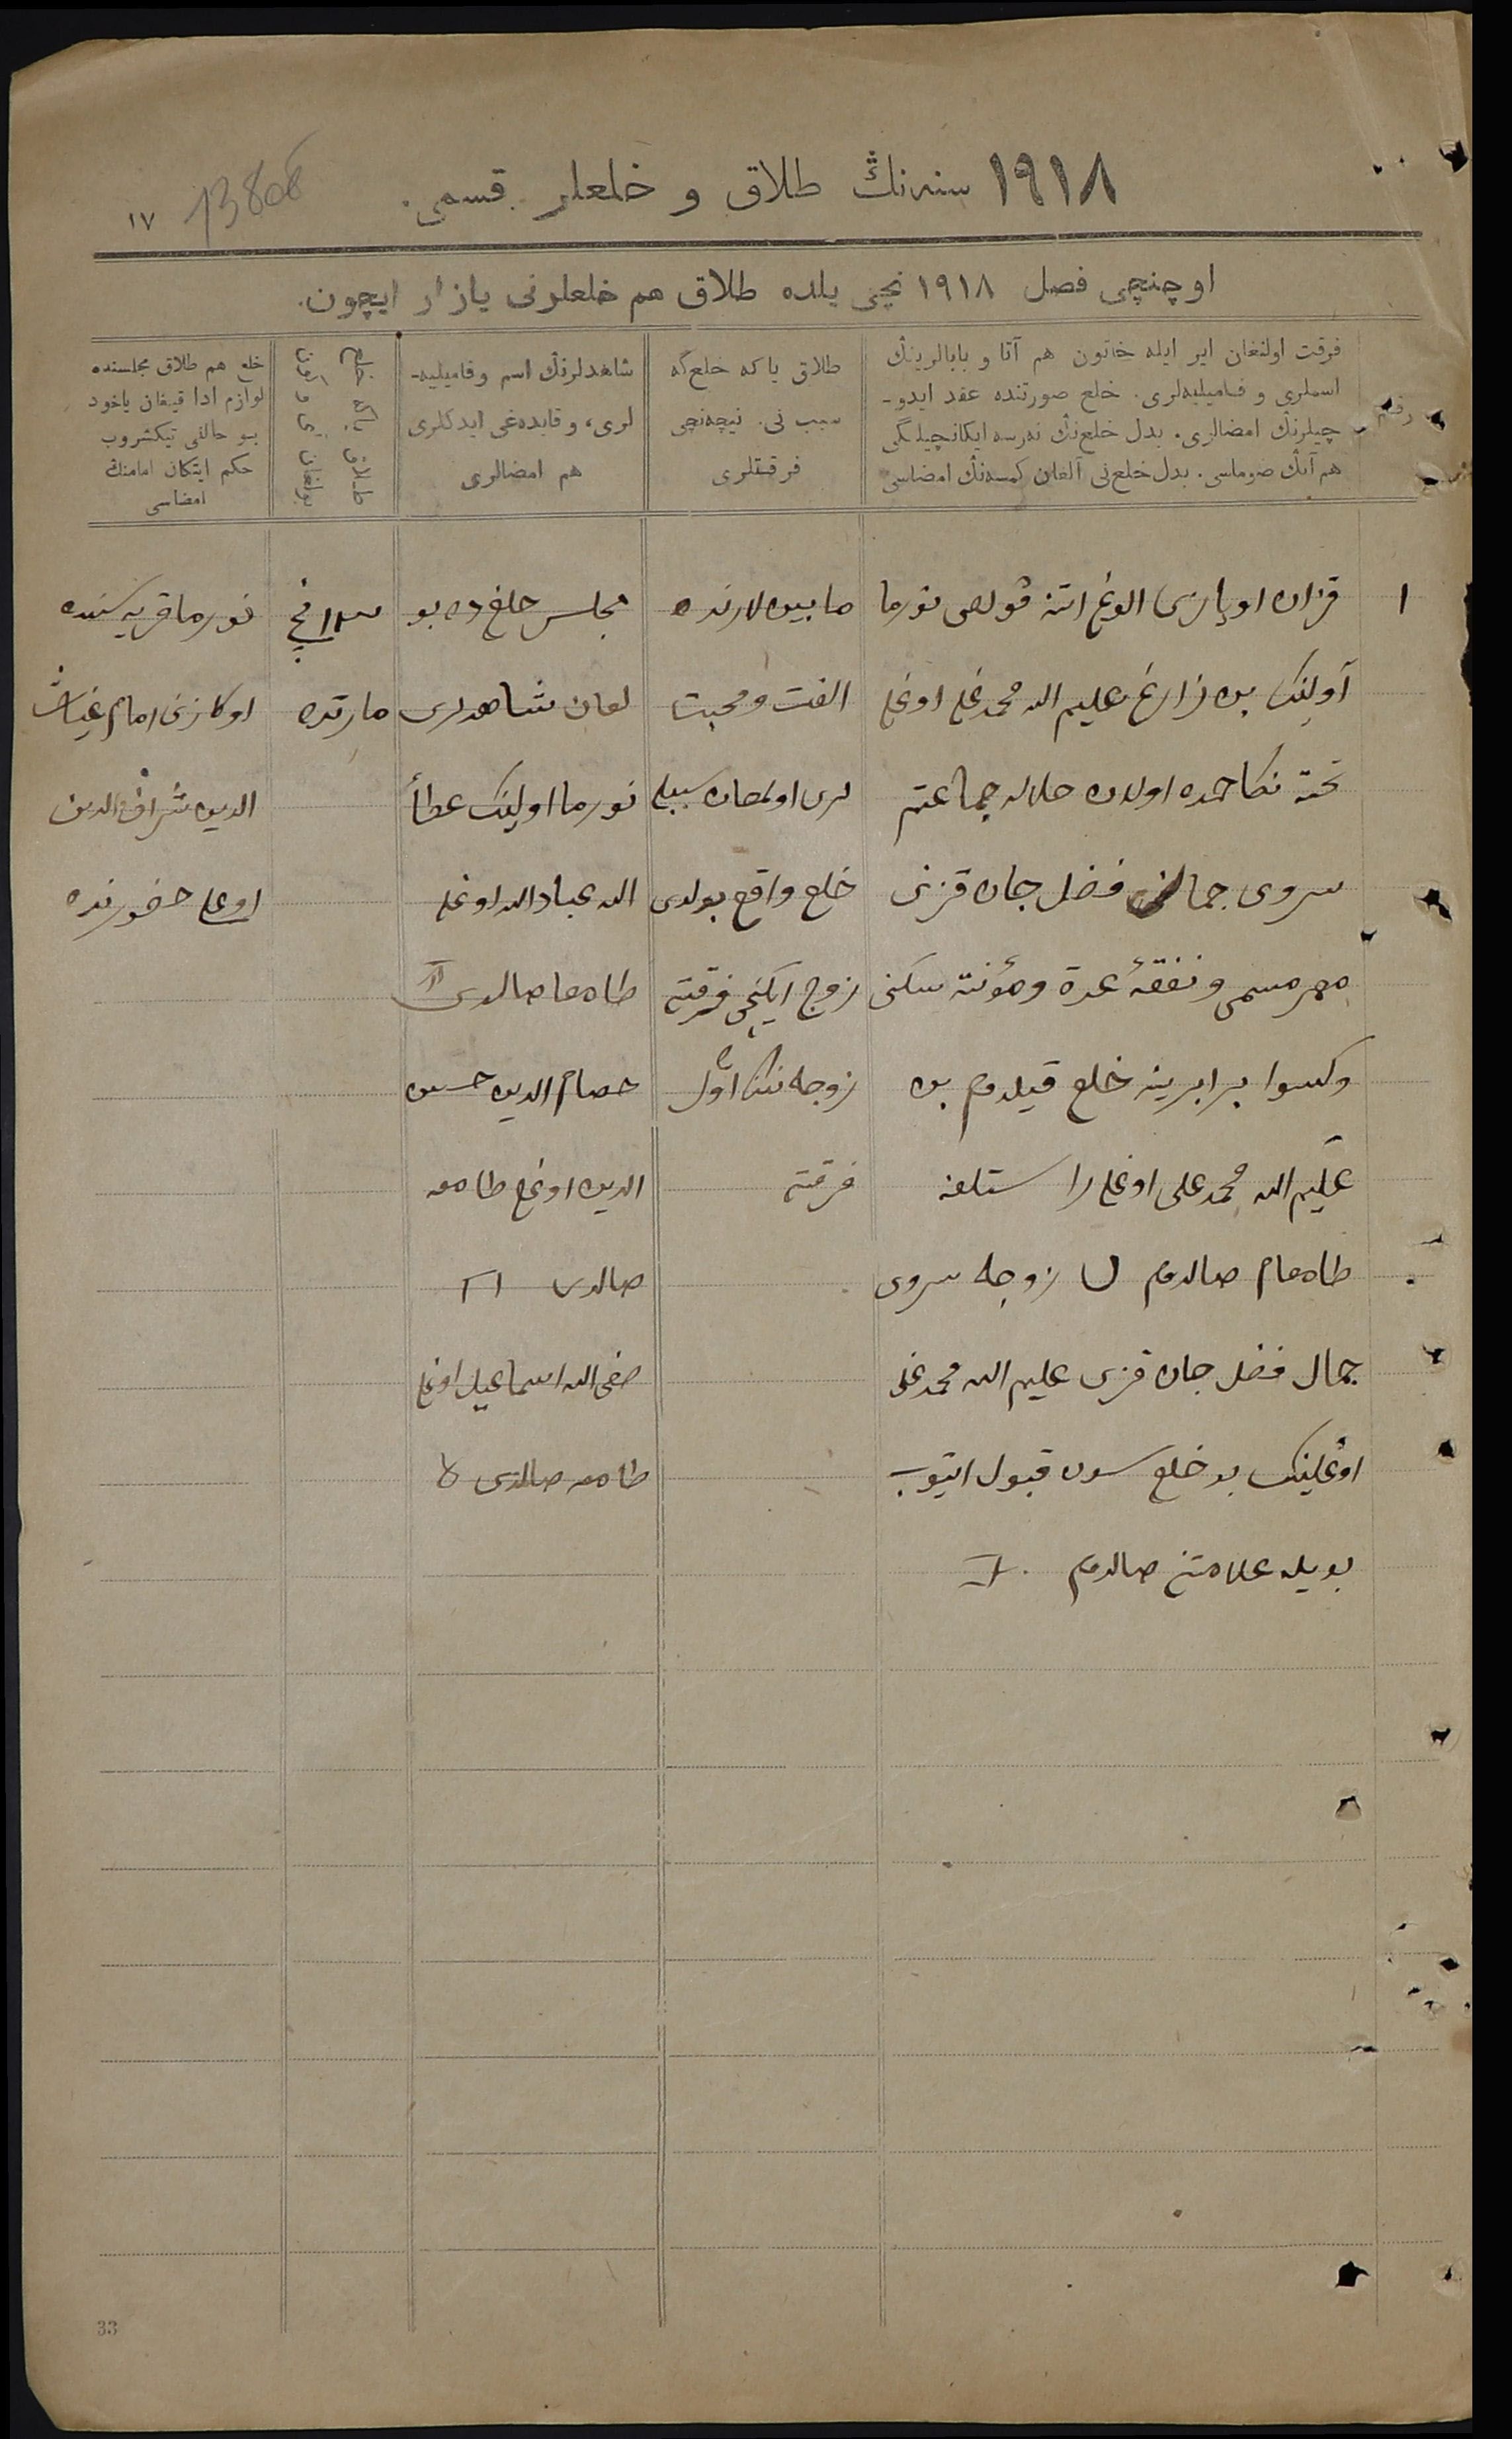 ١٩١٨ سنه‌نڭ طلاق و خلعلر قسمى.
13806
١٧
اوچنچى فصل ١٩١٨ نچى يلده طلاق هم خلعلرنى يازار ايچون.
رقم
فرقت اولنغان اير ايله خاتون هم آتا و بابالرينڭ
اسملرى و فاميليه‌لرى. خلع صورتنده عقد ايدو-
چيلرنڭ امضالرى. بدل خلع‌نڭ نه‌رسه ايكانچيلگى
هم آنڭ صوماسى. بدل خلع‌نى آلغان كمسه‌نڭ امضاسى
طلاق ياكه خلع‌گه
سبب نى. نيچه‌نچى
فرقتلرى
شاهدلرنڭ اسم و فاميليه-
لرى، و قايده‌غى ايدكلرى
هم امضالرى
خلع هم طلاق مجلسنده
لوازم ادا قيلغان ياخود
بو حالنى تيكشروب
حكم ايتكان امامنڭ
امضاسى
١
قزان اويازى الوغ اتنه ۋولصى نورما
آولينك بن زارع عليم الله محمدعلى اوغلى
تحت نكاحمده اولان حلاله جماعتم
سروى جمال فضل جان قزنى
مهر مسمى و نفقهٔ عدة و مؤنة سكنى
وكسوا برابرينه خلع قيلدم بن
عليم الله محمد على اوغلى
طامغام صالدم زوجه سروى
جمال فضل جان قزى عليم الله محمدعلى
اوغلينك بو خلع سون قبول ايتوب
بويله علامتم صالدم
مابينلارنده
الفت و محبت
لرى اولمغان سببلى
خلع واقع بولدى
زوج ايكنچى فرقتى
زوجه ننك اول
فرقتى
مجلس خلع ده بو
لغان شاهدلرى
نورما اولينك عطأ
الله عبادالله اوغلى
طامغا صالدى
حصام الدين حسن
الدين اوغلى طامغه
صالدى
صفى الله اسماعيل اوغلى
طامغه صالدى
١٣ نچى
مارتده
نورما قريه سنده
اوكازنى امام غياث
الدين شراف الدين
اوغلى حضورنده
33